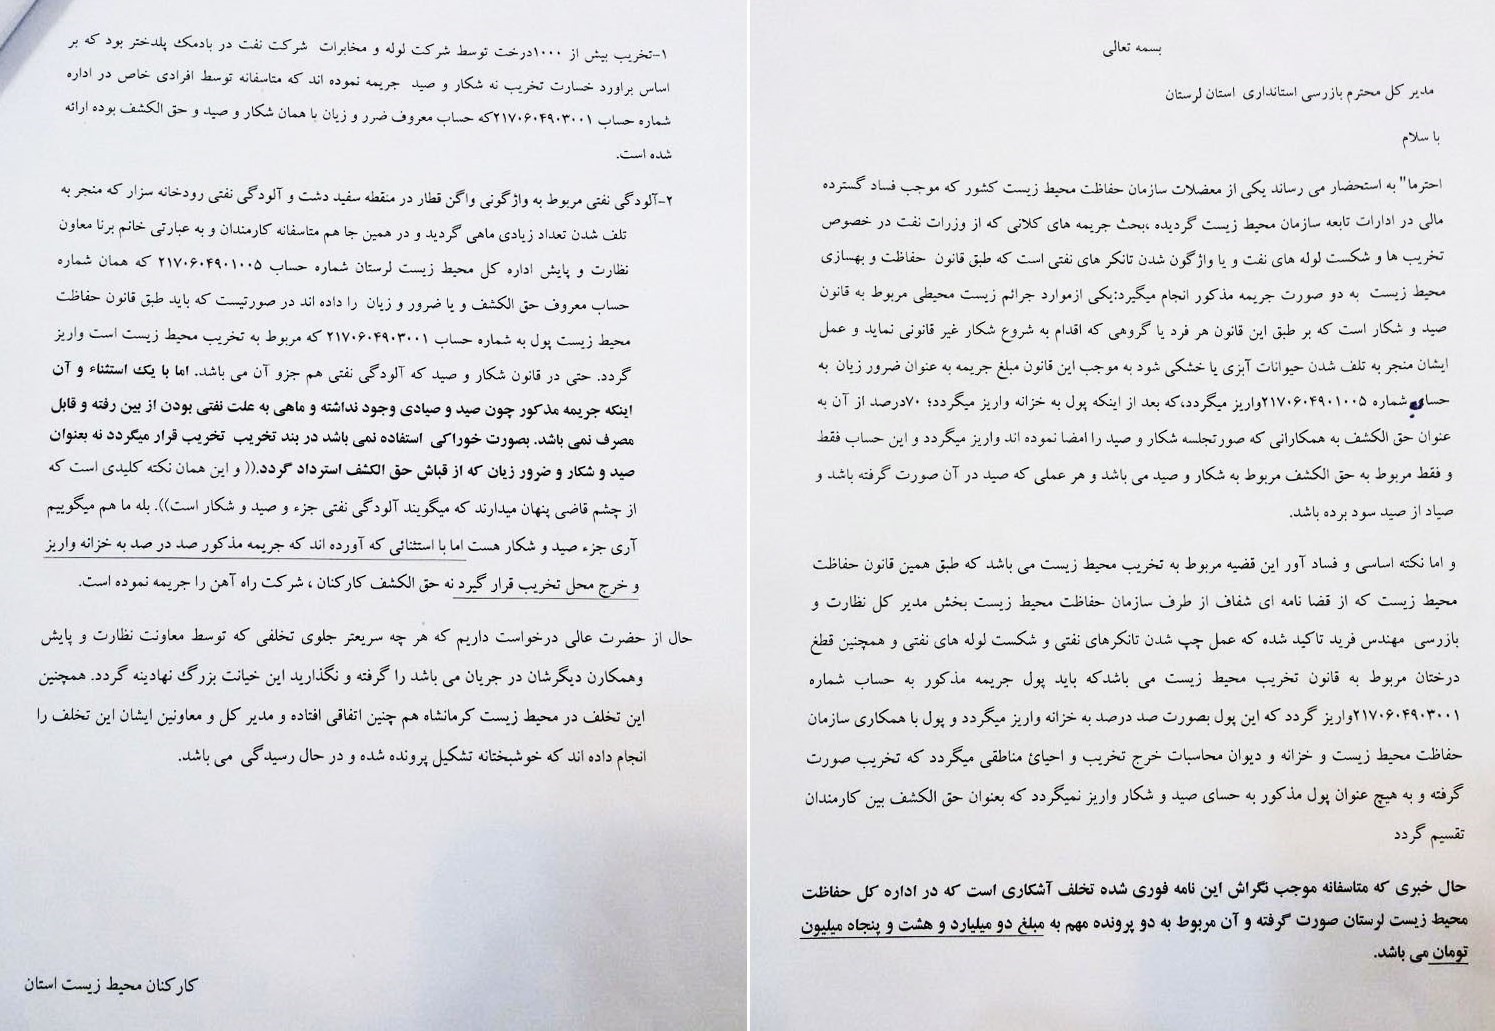 بسمه تعالی
مدیر کل محترم بازرسی استانداری استان لرستان
با سلام
احترما" به استحضار می رساند یکی از معضلات سازمان حفاظت محیط زیست کشور که موجب فساد گسترده
مالی در ادارات تابعه سازمان محیط زیست گردیده ،بحث جریمه های کلانی که از وزرات نفت در خصوص
تخریب ها و شکست لوله های نفت و یا واژگون شدن تانکر های نفتی است که طبق قانون حفاظت و بهسازی
محیط زیست به دو صورت جریمه مذکور انجام میگیرد:یکی ازموارد جرائم زیست محیطی مربوط به قانون
صید و شکار است که بر طبق این قانون هر فرد یا گروهی که اقدام به شروع شکار غیر قانونی نماید و عمل
ایشان منجر به تلف شدن حیوانات آبزی یا خشکی شود به موجب این قانون مبلغ جریمه به عنوان ضرور زیان به
حساب شماره ۲۱۷۰۶۰۴۹۰۱۰۰۵واریز میگردد،که بعد از اینکه پول به خزانه واریز میگردد؛ ۷۰درصد از آن به
عنوان حق الکشف به همکارانی که صورتجلسه شکار و صید را امضا نموده اند واریز میگردد و این حساب فقط
و فقط مربوط به حق الکشف مربوط به شکار و صید می باشد و هر عملی که صید در آن صورت گرفته باشد و
صیاد از صید سود برده باشد.
و اما نکته اساسی و فساد آور این قضیه مربوط به تخریب محیط زیست می باشد که طبق همین قانون حفاظت
محیط زیست که از قضا نامه ای شفاف از طرف سازمان حفاظت محیط زیست بخش مدیر کل نظارت و
بازرسی مهندس فرید تاکید شده که عمل چپ شدن تانکرهای نفتی و شکست لوله های نفتی و همچنین قطع
درختان مربوط به قانون تخریب محیط زیست می باشدکه باید پول جریمه مذکور به حساب شماره
۲۱۷۰۶۰۴۹۰۳۰۰۱واریز گردد که این پول بصورت صد درصد به خزانه واریز میگردد و پول با همکاری سازمان
حفاظت محیط زیست و خزانه و دیوان محاسبات خرج تخریب و احیائ مناطقی میگردد که تخریب صورت
گرفته و به هیچ عنوان پول مذکور به حسای صید و شکار واریز نمیگردد که بعنوان حق الکشف بین کارمندان
تقسیم گردد
حال خبری که متاسفانه موجب نگراش این نامه فوری شده تخلف آشکاری است که در اداره کل حفاظت
محیط زیست لرستان صورت گرفته و آن مربوط به دو پرونده مهم به مبلغ دو میلیارد و هشت و پنجاه میلیون
تومان می باشد.
۱-تخریب بیش از ۱۰۰۰درخت توسط شرکت لوله و مخابرات شرکت نفت در بادمک پلدختر بود که بر
اساس براورد خسارت تخریب نه شکار و صید جریمه نموده اند که متاسفانه توسط افرادی خاص در اداره
شماره حساب ۲۱۷۰۶۰۴۹۰۳۰۰۱که حساب معروف ضرر و زیان با همان شکار و صید و حق الکشف بوده ارائه
شده است.
۲-آلودگی نفتی مربوط به واژگونی واگن قطار در منقطه سفید دشت و آلودگی نفتی رودخانه سزار که منجر به
تلف شدن تعداد زیادی ماهی گردید و در همین جا هم متاسفانه کارمندان و به عبارتی خانم برنا معاون
نظارت و پایش اداره کل محیط زیست لرستان شماره حساب ۲۱۷۰۶۰۴۹۰۱۰۰۵ که همان شماره
حساب معروف حق الکشف و یا ضرور و زیان را داده اند در صورتیست که باید طبق قانون حفاظت
محیط زیست پول به شماره حساب ۲۱۷۰۶۰۴۹۰۳۰۰۱ که مربوط به تخریب محیط زیست است واریز
گردد. حتی در قانون شکار و صید که آلودگی نفتی هم جزو آن می باشد. اما با یک استثناء و آن
اینکه جریمه مذکور چون صید و صیادی وجود نداشته و ماهی به علت نفتی بودن از بین رفته و قابل
مصرف نمی باشد. بصورت خوراکی استفاده نمی باشد در بند تخریب تخریب قرار میگردد نه بعنوان
صید و شکار و ضرور زیان که از قباش حق الکشف استرداد گردد.(( و این همان نکته کلیدی است که
از چشم قاضی پنهان میدارند که میگویند آلودگی نفتی جزء و صید و شکار است)). بله ما هم میگوییم
آری جزء صید و شکار هست اما با استثنائی که آورده اند که جریمه مذکور صد در صد به خزانه واریز
و خرج محل تخریب قرار گیرد نه حق الکشف کارکنان ، شرکت راه آهن را جریمه نموده است.
حال از حضرت عالی درخواست داریم که هر چه سریعتر جلوی تخلفی که توسط معاونت نظارت و پایش
وهمکارن دیگرشان در جریان می باشد را گرفته و نگذارید این خیانت بزرگ نهادینه گردد. همچنین
این تخلف در محیط زیست کرمانشاه هم چنین اتفاقی افتاده و مدیر کل و معاونین ایشان این تخلف را
انجام داده اند که خوشبختانه تشکیل پرونده شده و در حال رسیدگی می باشد.
کارکنان محیط زیست استان